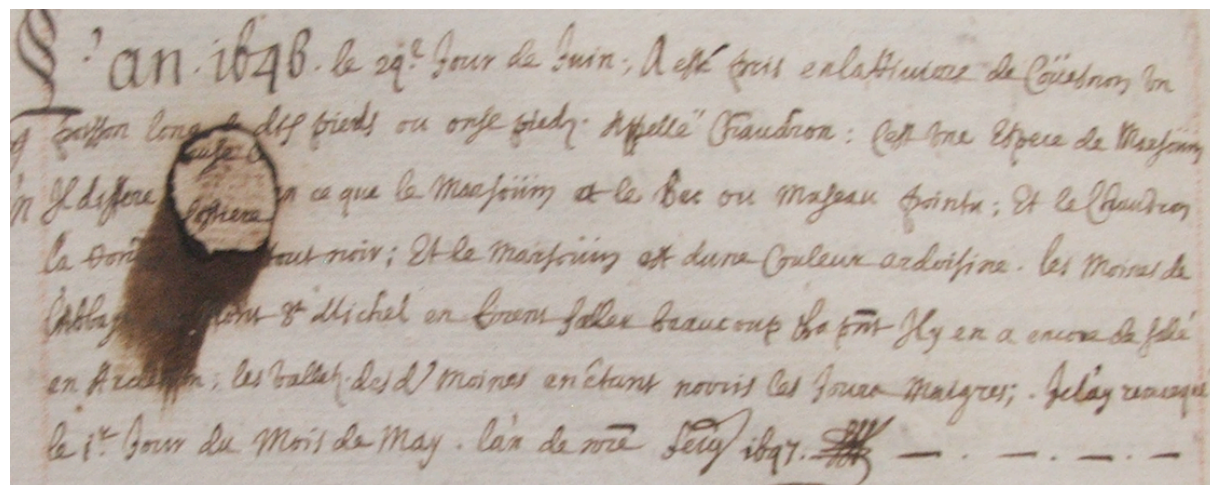 L'an . 1646 . le 29.e Jour de Juin ; A esté pris en la Riuiere de Coüesnon Un
poisson long de dix pieds ou onse pieds . Appellé Chaudron : C'est Une Espece de Marsoüin
Il differe en ce que le Marsoüin at le Bec ou Museau pointu ; Et le Chaudron
la tout noir ; Et le Marsoüin est dune Couleur ardoisine . les Moines de
l'Abbaye Mont St Michel en firent saller beaucoup Il y en a encore de sallé
en ; les Vallets des d. Moines en étant nouris les Jours Maigres ; . Je l'ay remarqué
le 1.er Jour du Mois de May . l'an de nre Seig 1647 .